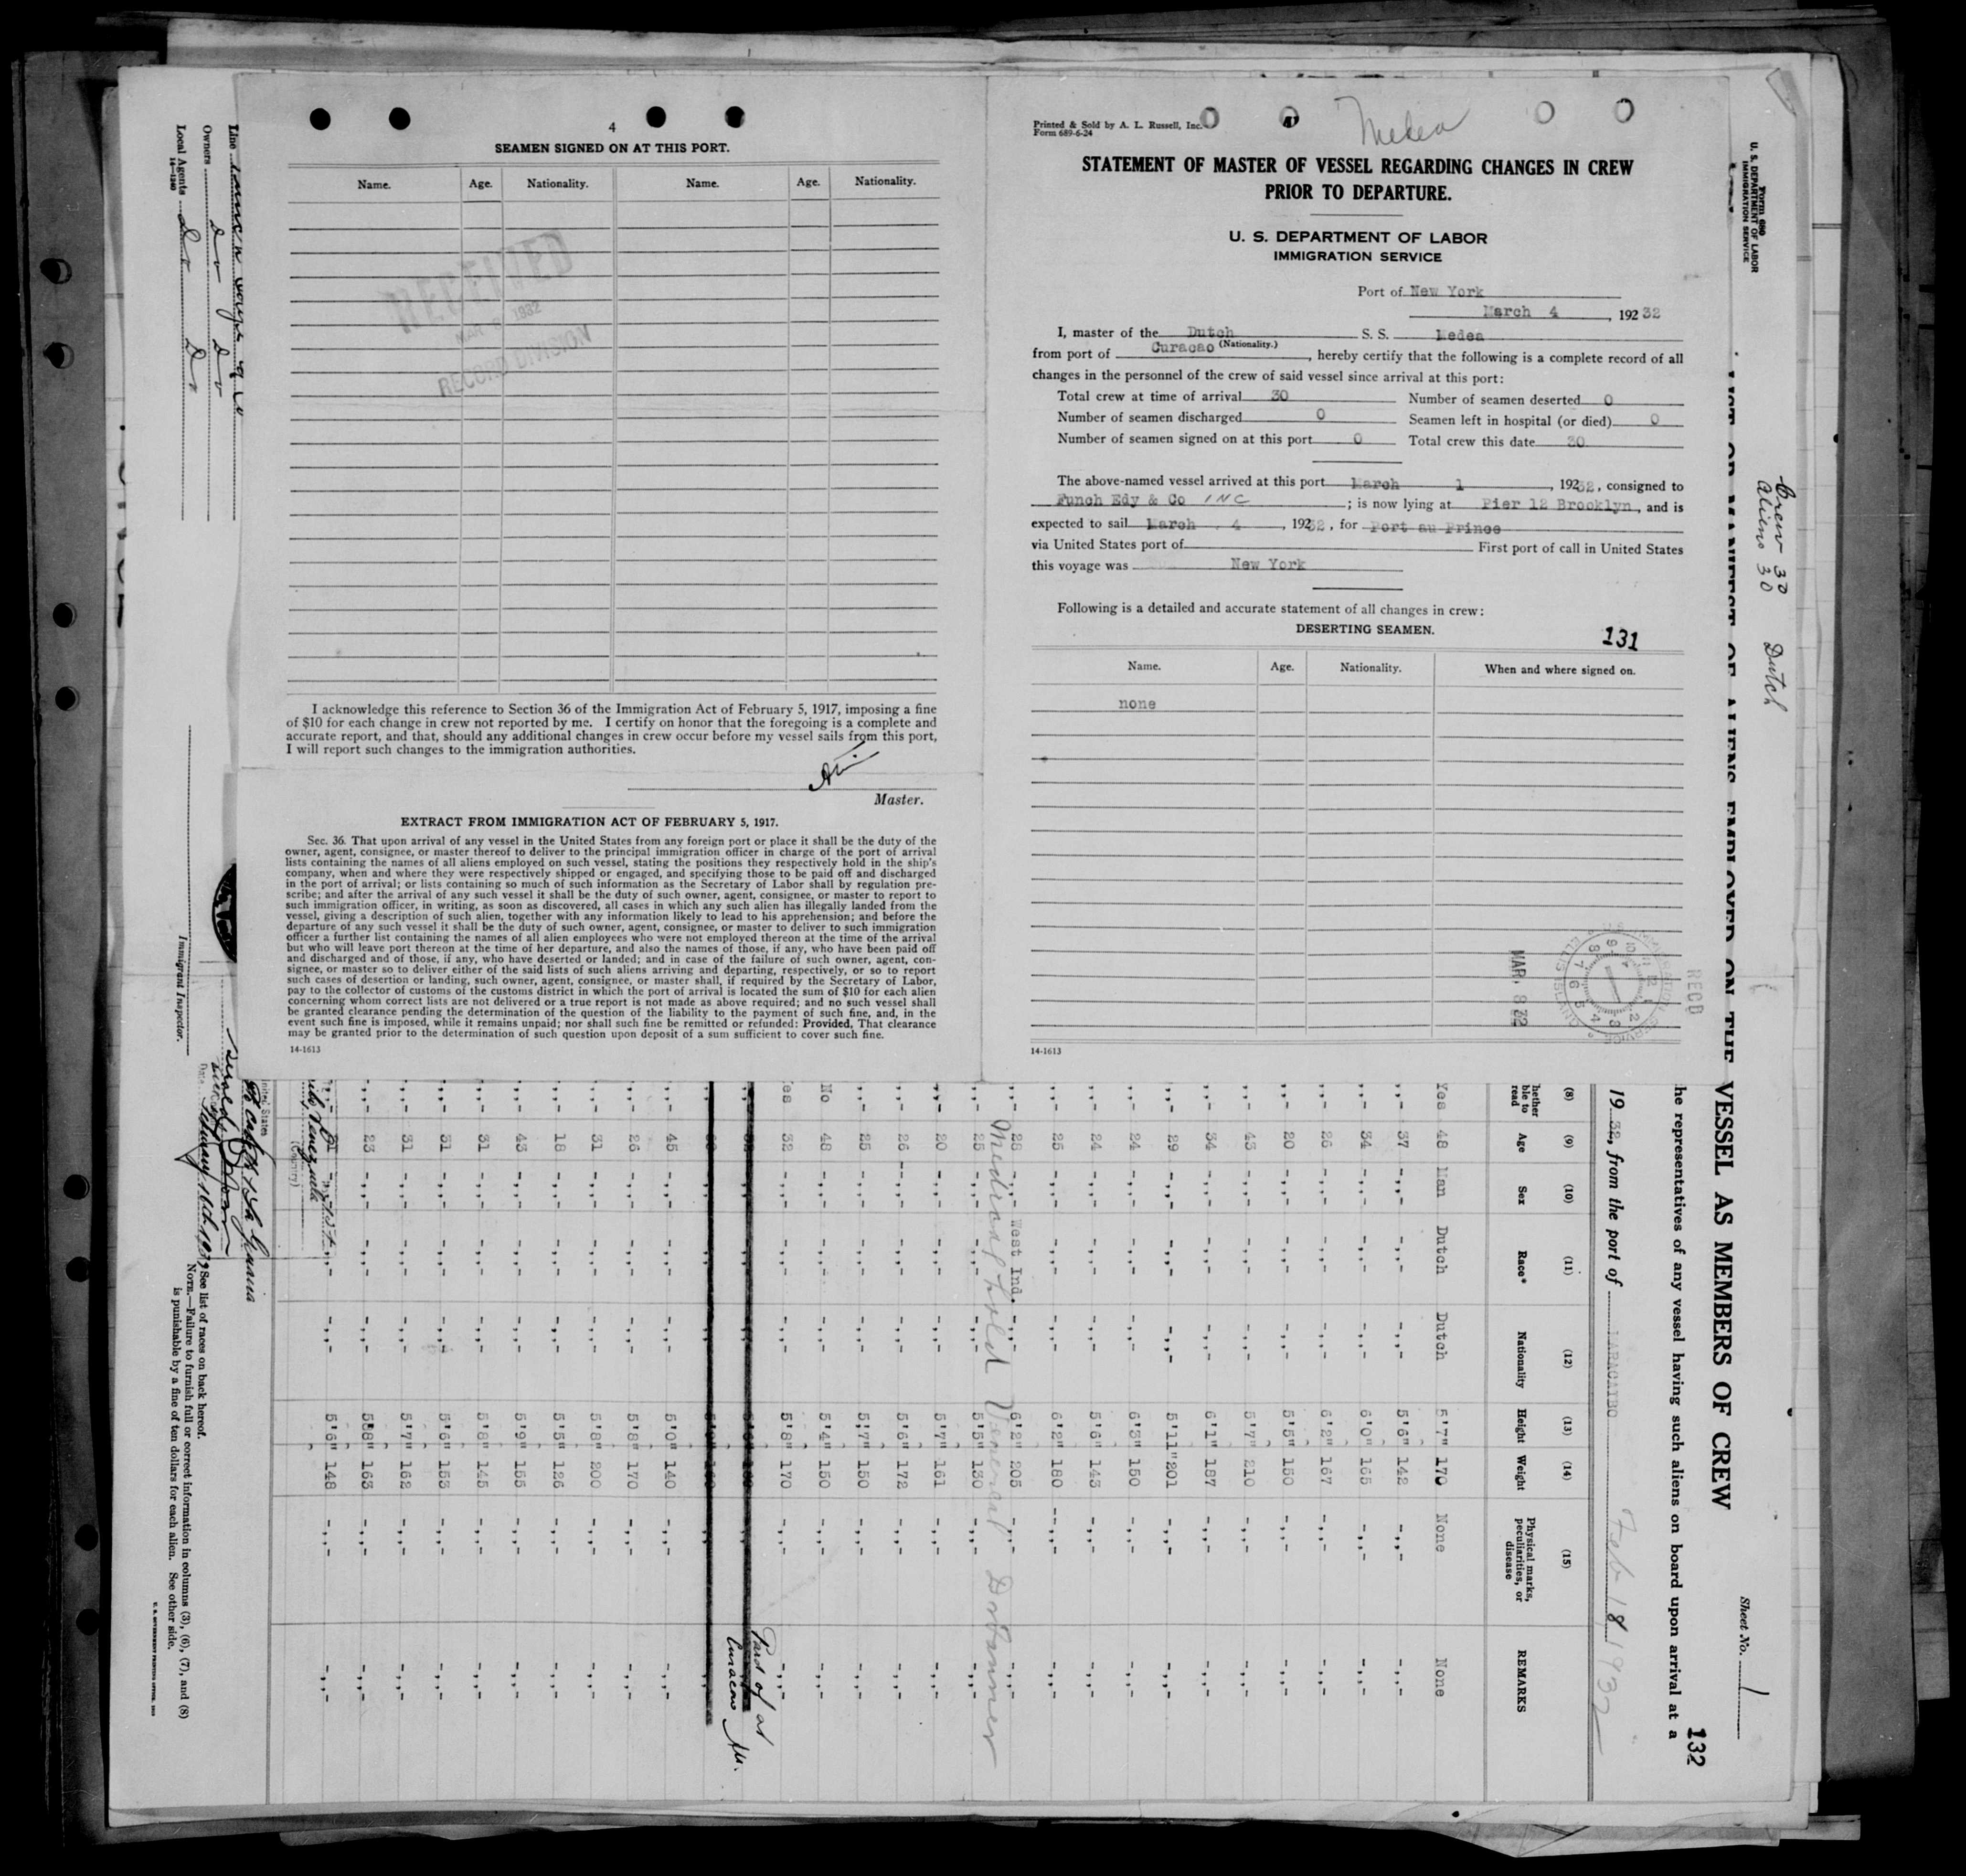 4
SEAMEN SIGNED ON AT THIS PORT.
Name. Age. Nationality. Name. Age. Nationality.
RECEIVED
MAR 1932
RECORD DIVISION
I acknowledge this reference to Section 36 of the Immigration Act of February 5, 1917, imposing a fine
of $10 for each change in crew not reported by me. I certify on honor that the foregoing is a complete and
accurate report, and that, should any additional changes in crew occur before my vessel sails from this port,
I will report such changes to the immigration authorities.
Master.
EXTRACT FROM IMMIGRATION ACT OF FEBRUARY 5, 1917.
Sec. 36. That upon arrival of any vessel in the United States from any foreign port or place it shall be the duty of the
owner, agent, consignee, or master thereof to deliver to the principal immigration officer in charge of the port of arrival
lists containing the names of all aliens employed on such vessel, stating the positions they respectively hold in the ship's
company, when and where they were respectively shipped or engaged, and specifying those to be paid off and discharged
in the port of arrival; or lists containing so much of such information as the Secretary of Labor shall by regulation pre-
scribe; and after the arrival of any such vessel it shall be the duty of such owner, agent, consignee, or master to report to
such immigration officer, in writing, as soon as discovered, all cases in which any such alien has illegally landed from the
vessel, giving a description of such alien, together with any information likely to lead to his apprehension; and before the
departure of any such vessel it shall be the duty of such owner, agent, consignee, or master to deliver to such immigration
officer a further list containing the names of all alien employees who were not employed thereon at the time of the arrival
but who will leave port thereon at the time of her departure, and also the names of those, if any, who have been paid off
and discharged and of those, if any, who have deserted or landed; and in case of the failure of such owner, agent, con-
signee, or master so to deliver either of the said lists of such aliens arriving and departing, respectively, or so to report
such cases of desertion or landing, such owner, agent, consignee, or master shall, if required by the Secretary of Labor,
pay to the collector of customs of the customs district in which the port of arrival is located the sum of $10 for each alien
concerning whom correct lists are not delivered or a true report is not made as above required; and no such vessel shall
be granted clearance pending the determination of the question of the liability to the payment of such fine, and, in the
event such fine is imposed, while it remains unpaid; nor shall such fine be remitted or refunded: Provided, That clearance
may be granted prior to the determination of such question upon deposit of a sum sufficient to cover such fine.
14-1613
Printed & Sold by A. L. Russell, Inc.
Form 689-6-24
Medea
STATEMENT OF MASTER OF VESSEL REGARDING CHANGES IN CREW
PRIOR TO DEPARTURE.
U. S. DEPARTMENT OF LABOR
IMMIGRATION SERVICE
Port of New York
March 4, 192 32
I, master of the Dutch S. S. Medea
from port of Curacao (Nationality.), hereby certify that the following is a complete record of all
changes in the personnel of the crew of said vessel since arrival at this port:
Total crew at time of arrival 30 Number of seamen deserted 0
Number of seamen discharged 0 Seamen left in hospital (or died) 0
Number of seamen signed on at this port 0 Total crew this date 30
The above-named vessel arrived at this port March 1, 192 32, consigned to
Funch Edy & Co INC; is now lying at Pier 12 Brooklyn, and is
expected to sail March 4, 192 32, for Port au Prince
via United States port of First port of call in United States
this voyage was New York
Following is a detailed and accurate statement of all changes in crew:
DESERTING SEAMEN.
131
Name. Age. Nationality. When and where signed on.
none
MAR. 8 32
RECD
14-1613
Form 680
U. S. DEPARTMENT OF LABOR
IMMIGRATION SERVICE
Crew 30
Aliens 30 Dutch
Sheet No. 1
132
LIST OR MANIFEST OF ALIENS EMPLOYED ON THE VESSEL AS MEMBERS OF CREW
he representatives of any vessel having such aliens on board upon arrival at a
19 32, from the port of MARACAIBO Feb 18 1932
(8) (9) (10) (11) (12) (13) (14) (15)
hether ble to read Age Sex Race* Nationality Height Weight Physical marks, peculiarities, or disease REMARKS
Yes 48 Man Dutch Dutch 5'7" 170 None None
-,,- 37 -,,- -,,- -,,- 5'6" 142 -,,- -,,-
-,,- 34 -,,- -,,- -,,- 6'0" 165 -,,- -,,-
-,,- 25 -,,- -,,- -,,- 6'2" 167 -,,- -,,-
-,,- 20 -,,- -,,- -,,- 5'5" 150 -,,- -,,-
-,,- 43 -,,- -,,- -,,- 5'7" 210 -,,- -,,-
-,,- 34 -,,- -,,- -,,- 6'1" 187 -,,- -,,-
-,,- 29 -,,- -,,- -,,- 5'11" 201 -,,- -,,-
-,,- 24 -,,- -,,- -,,- 6'3" 150 -,,- -,,-
-,,- 24 -,,- -,,- -,,- 5'6" 143 -,,- -,,-
-,,- 25 -,,- -,,- -,,- 6'2" 180 -,,- -,,-
-,,- 28 -,,- West Ind. -,,- 6'2" 205 -,,- -,,-
Medical hold Venereal
-,,- 25 -,,- -,,- -,,- 5'5" 130 -,,- -,,-
-,,- 20 -,,- -,,- -,,- 5'7" 161 -,,- -,,-
-,,- 26 -,,- -,,- -,,- 5'6" 172 -,,- -,,-
-,,- 25 -,,- -,,- -,,- 5'7" 150 -,,- -,,-
No 48 -,,- -,,- -,,- 5'4" 150 -,,- -,,-
es 32 -,,- -,,- -,,- 5'8" 170 -,,- -,,-
Paid of at
Curacao
-,,- 45 -,,- -,,- -,,- 5'0" 140 -,,- -,,-
-,,- 26 -,,- -,,- -,,- 5'8" 170 -,,- -,,-
-,,- 31 -,,- -,,- -,,- 5'8" 200 -,,- -,,-
-,,- 18 -,,- -,,- -,,- 5'5" 126 -,,- -,,-
-,,- 43 -,,- -,,- -,,- 5'9" 155 -,,- -,,-
-,,- 31 -,,- -,,- -,,- 5'8" 145 -,,- -,,-
-,,- 31 -,,- -,,- -,,- 5'6" 153 -,,- -,,-
-,,- 31 -,,- -,,- -,,- 5'7" 162 -,,- -,,-
-,,- 23 -,,- -,,- -,,- 5'8" 163 -,,- -,,-
-,,- -,,- 5'6" 148 -,,- -,,-
Venezuela
(Country)
United States
Date, February 16th 1932
*See list of races on back hereof.
NOTE.—Failure to furnish full or correct information in columns (3), (6), (7), and (8)
is punishable by a fine of ten dollars for each alien. See other side.
U. S. GOVERNMENT PRINTING OFFICE
Line
Owners Do Do
Local Agents Do Do
14-1240
Immigrant Inspector.